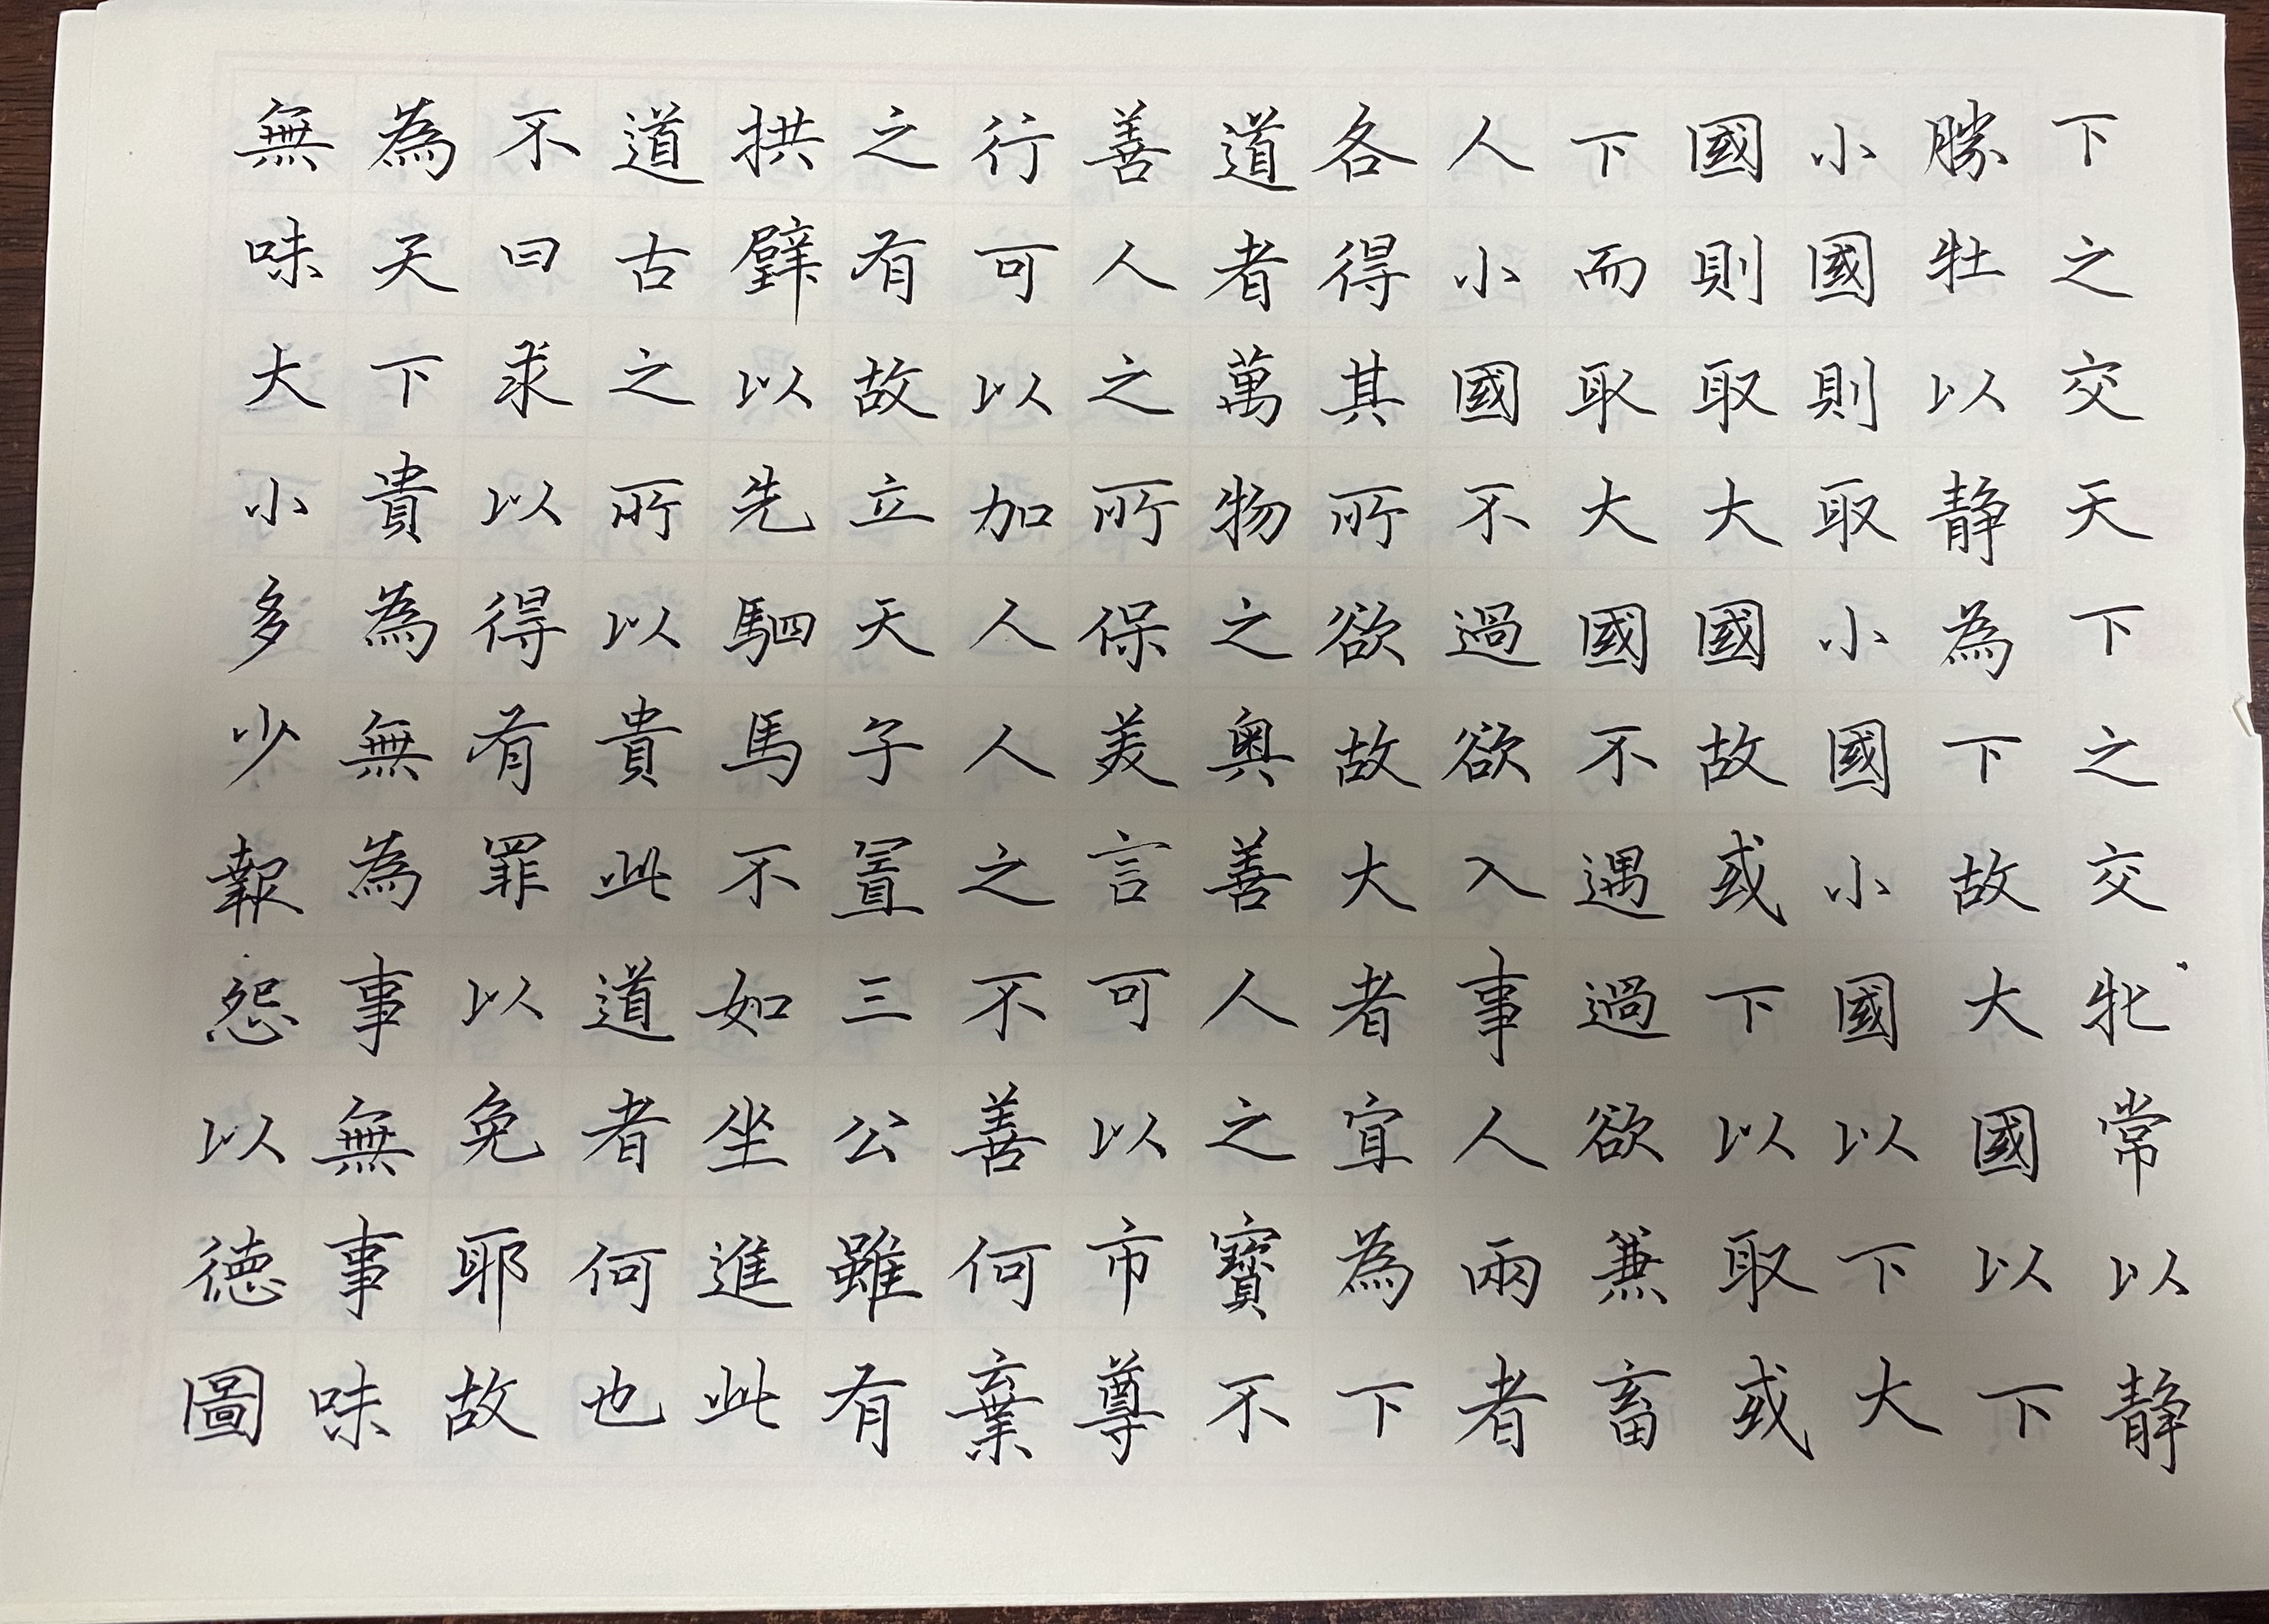 下之交天下之交牝常以静
勝牡以静為下故大國以下
小國則取小國小國以下大
國則取大國故或下以取或
下而取大國不遇過欲兼畜
人小國不過欲入事人兩者
各得其所欲故大者宜為下
道者萬物之奥善人之寳不
善人之所保美言可以市尊
行可以加人人之不善何棄
之有故立天子置三公雖有
拱璧以先駟馬不如坐進此
道古之所以貴此道者何也
不曰求以得有罪以免耶故
為天下貴為無為事無事味
無味大小多少報怨以德圖